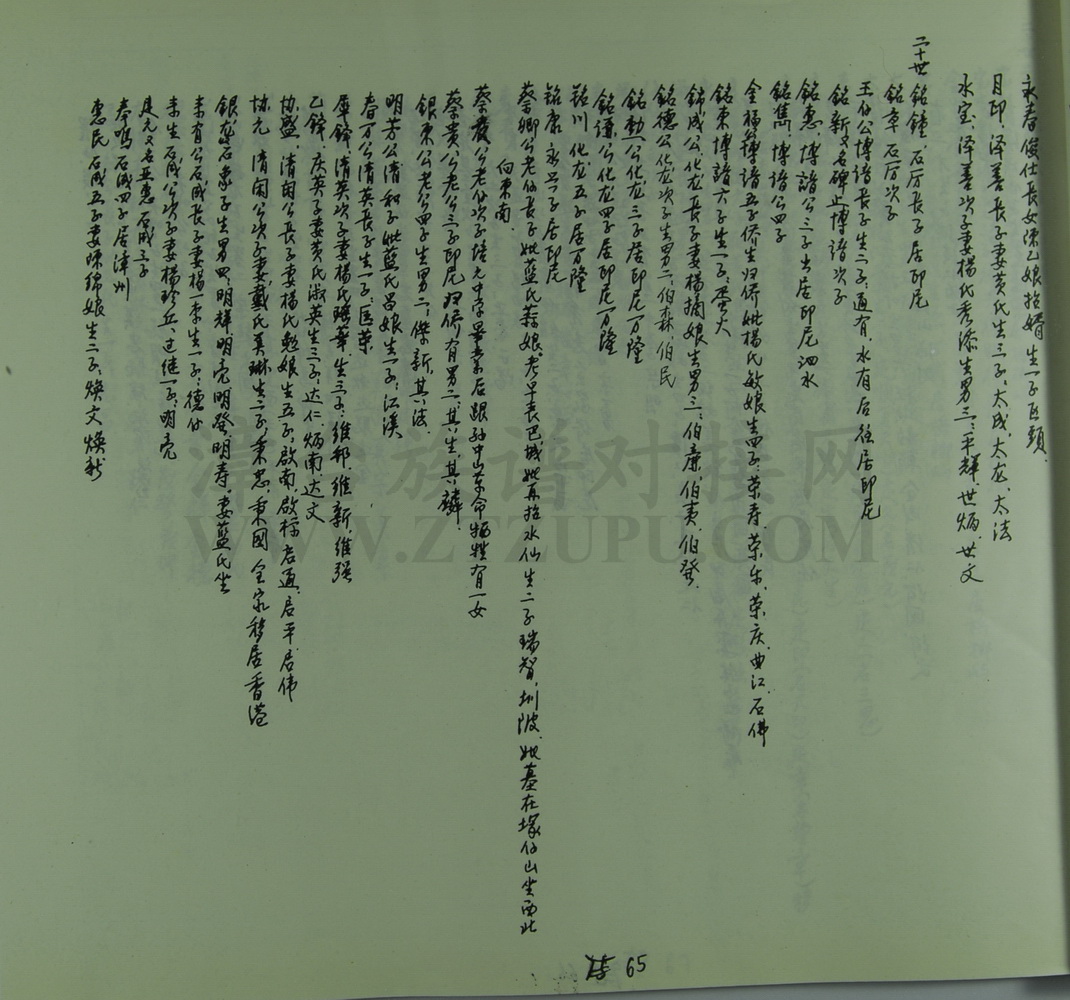 永春 俊仕長女陳乙娘招婿生一子臣頭.
月印,泽善長子妻黄氏生三子:太成,太龙,太法
水宝,泽善次子妻楊氏秀添生男三:平輝,世炳,世文
二十世 銘鐘,石厉長子居印尼
銘章 石厉次子
王仕公博諳長子生二子:通有,水有后往居印尼
銘新 又名碑止博諳次子
銘惠,博諳公三子出居印尼泗水
銘雋,博諳公四子
金福 博諳五子侨生归侨妣楊氏敏娘生四子:荣寿,荣乐,荣庆,曲江,石佛
銘東博諳六子生一子:
錦成公,化龙長子妻楊摘娘生男三:伯康,伯夷,伯發.
銘德公化龙次子生男二:伯森,伯民
銘勳公化龙三子居印尼万隆
銘謹公化龙四子居印尼万隆
銘川 化龙五子居万隆
銘康 永 子居印尼
蔡卿公老仕長子妣藍氏蒜娘,老早丧巴城妣再招水仙生二子瑞智,圳陂,妣墓在塚仔山坐西北
向東南.
蔡發公老仕次子培元中学畢業后跟孙中山革命牺牲有一女
蔡贵公老公三子印尼归侨有男二:其生,其麟.
銀東公老公四子生男二:傑新,其法.
明芳公清和子妣藍氏吕娘生一子:江溪
春万公清英長子生一子:医荣
犀鋒,清英次子妻楊氏瑶華,生三子:維邦,維新,維强
乙鋒,庆英子妻黄氏淑英生三子:达仁,炳南,达文
协盛,清闹公長子妻楊氏勉娘生五子:啟南,啟标,启通,启平,启伟
协元 清闹公次子妻戴氏美琳生二子:秉忠,秉國全家移居香港
銀 石象子生男四:明輝,明亮,明發,明寿,妻藍氏坐
来有公石成長子妻楊一李生一子:德仕
来生 石成公次子妻楊珍丘,过继一子:明亮
建元又名亚惠 石成三子
奉鳴 石成四子居漳州
惠民 石成五子妻陳绵娘生二子:焕文 焕新
65
漳州族谱对接网
WWW.ZTZUPU.COM